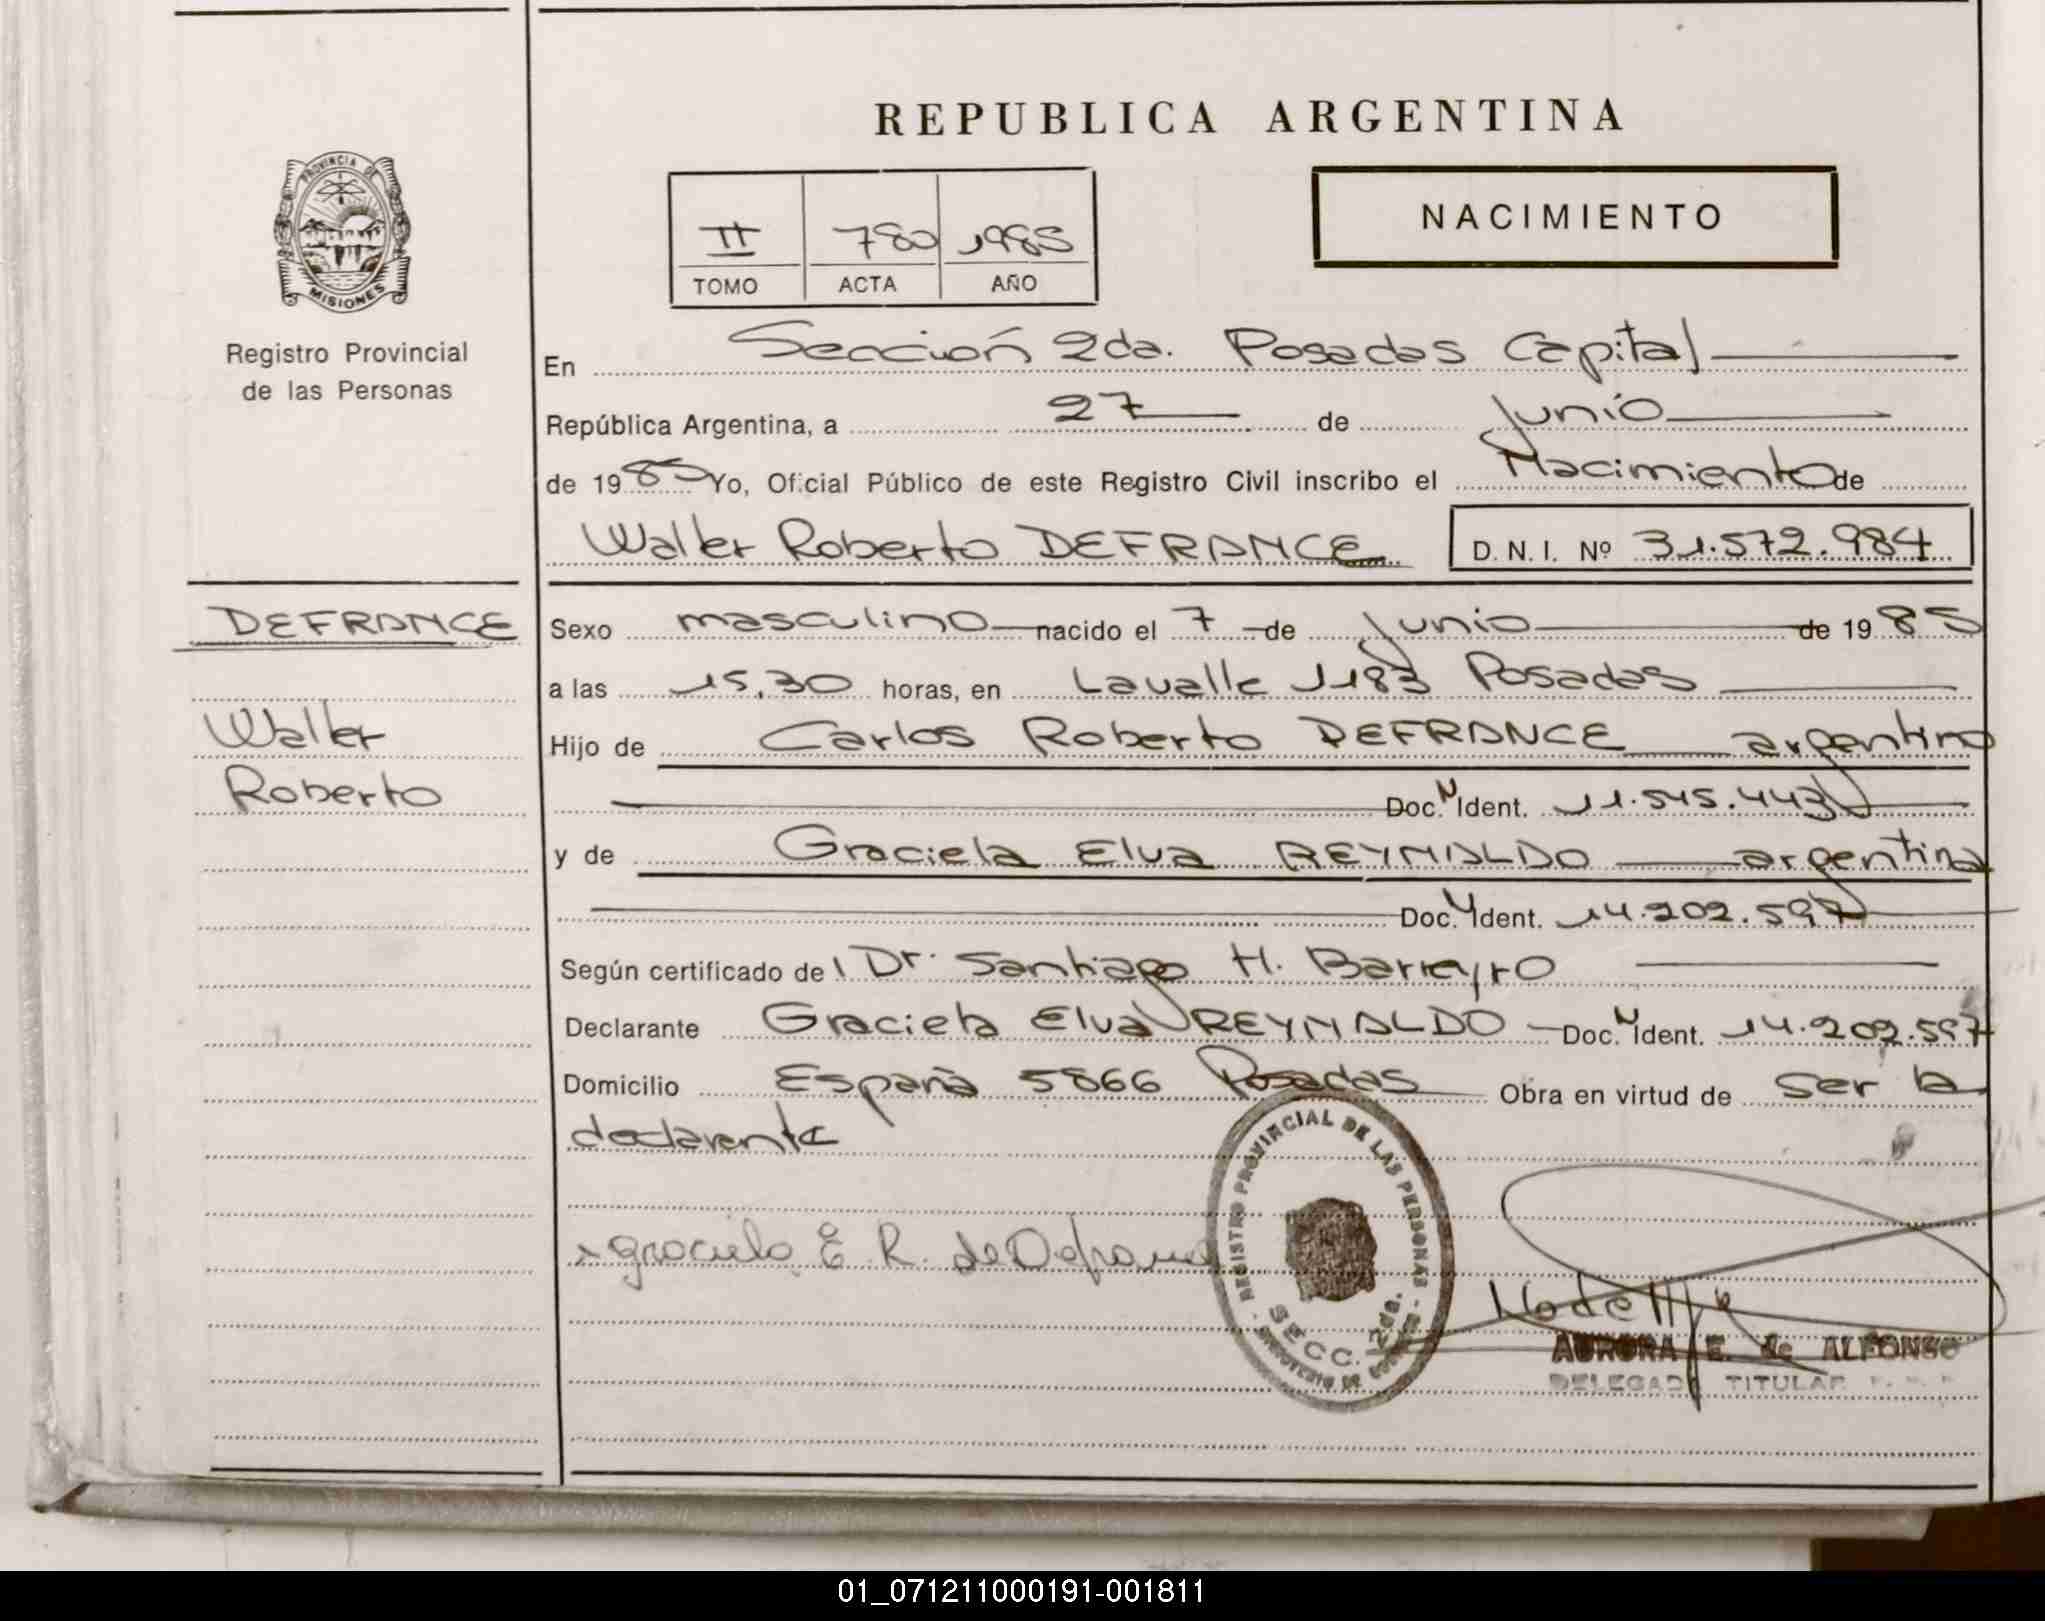 REPUBLICA ARGENTINA
PROVINCIA DE
MISIONES
Registro Provincial
de las Personas
II 780 1985
TOMO ACTA AÑO
NACIMIENTO
En Sección 2da. Posadas Capital
República Argentina, a 27 de Junio
de 1985 Yo, Oficial Público de este Registro Civil inscribo el Nacimiento de
Walter Roberto DEFRANCE D. N. I. Nº 31.572.984
DEFRANCE
Walter
Roberto
Sexo masculino nacido el 7 de Junio de 1985
a las 15.30 horas, en Lavalle 1183 Posadas
Hijo de Carlos Roberto DEFRANCE argentino
Doc. N Ident. 11.545.443
y de Graciela Elva REYNALDO argentina
Doc. Ident. 14.202.597
Según certificado de Dr. Santiago H. Barreyro
Declarante Graciela Elva REYNALDO Doc. N Ident. 14.202.597
Domicilio España 5866 Posadas Obra en virtud de ser la
declarante
Graciela E. R. de Defrance
REGISTRO PROVINCIAL DE LAS PERSONAS
SECC. 2da.
AURORA E. de ALFONSO
DELEGADA TITULAR
01_071211000191-001811